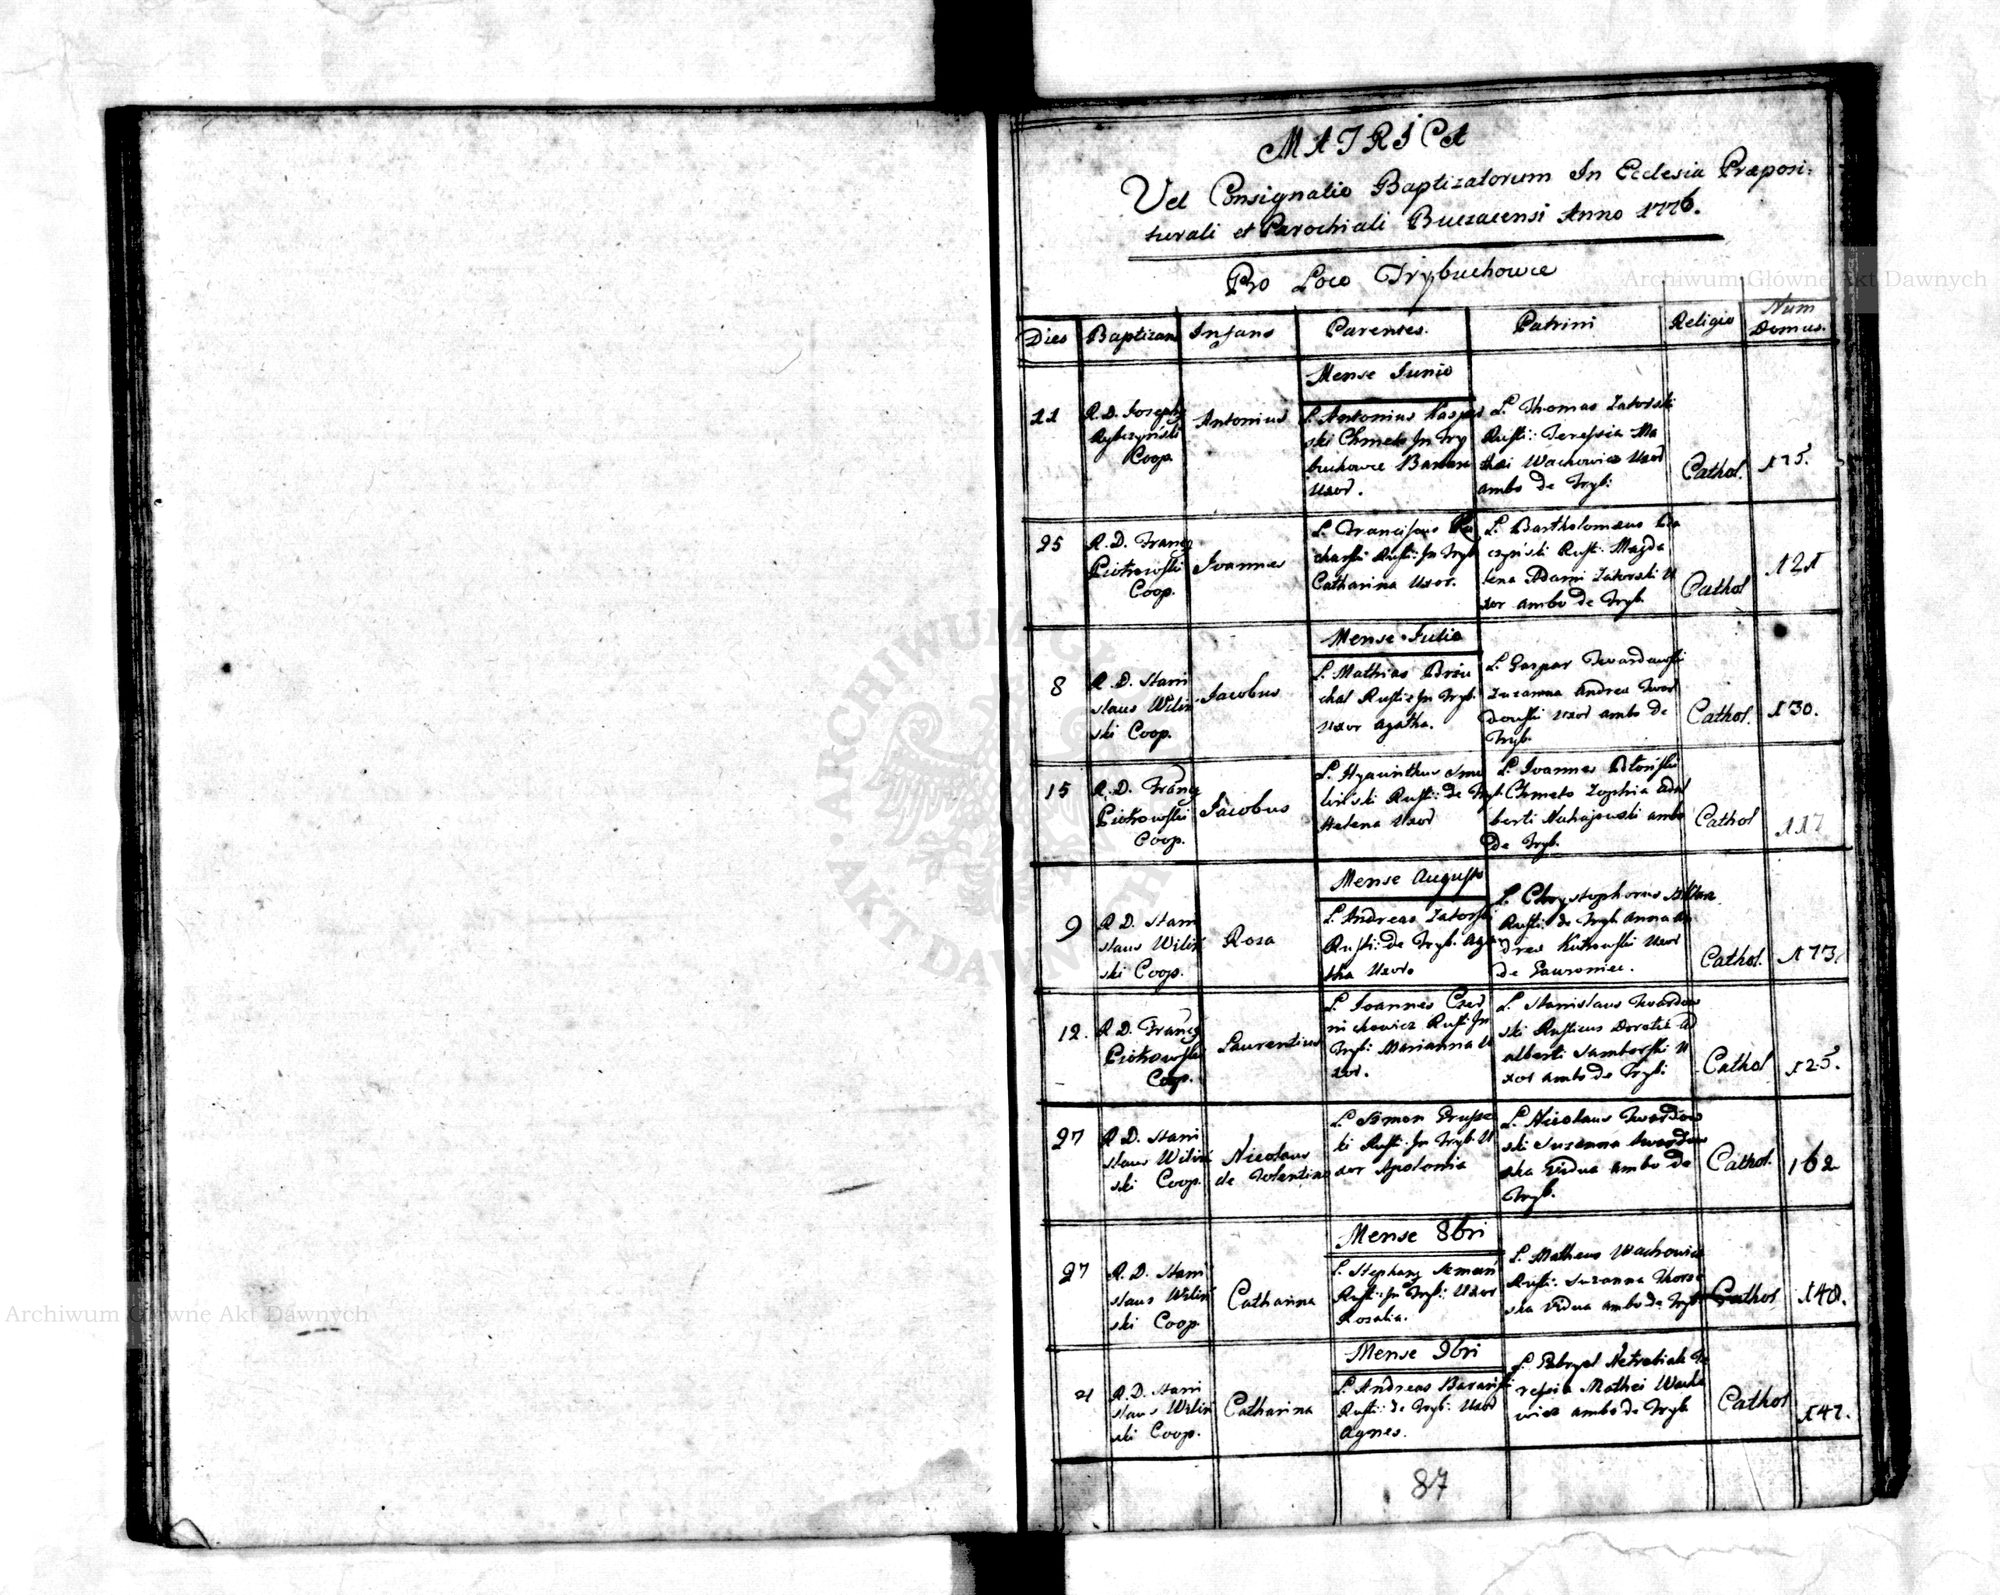 MATRICA
Vel Consignatio Baptizatorum In Ecclesia Præposi-
turali et Parochiali Buczacensi Anno 1776.
Pro Loco Trybuchowce
Dies Baptizans Infans Parentes. Patrini Religio Num Domus.
Mense Junio
11
R. D. Joseph
Rybczynski
Coop.
Antonius
L. Antonius Kasper
ski Chmeto In Try
buchowce Barbara
Uxor.
L. Thomas Zatorski
Rusti: Teressia Ma
thei Wachowicz Uxor
ambo de Tryb:
Cathol.
N 75.
25
R. D. Franc
Piotrowski
Coop.
Joannes
L. Franciscus
Rusti: In Tryb
Catharina Uxor.
L. Bartholomæus
Rusti: Magda
lena Adami Zatorski U
xor ambo de Tryb.
Cathol
N 21
Mense Julio
8
R. D. Stani
slaus Wiliń
ski Coop.
Jacobus
L. Mathias
Rusti: In Tryb.
Uxor Agatha.
L. Gaspar Twardowski
Zuzanna Andrea Twar
dowski Uxor ambo de
Tryb.
Cathol.
N 30.
15
R. D. Franc
Piotrowski
Coop.
Jacobus
L. Hyacinthus Smu
liński Rusti: de Tryb.
Helena Uxor
L. Joannes
Chmeto Zophia Adal
berti ambo
de Tryb.
Cathol
117
Mense Augusto
9
R. D. Stani
slaus Wiliń
ski Coop.
Rosa
L. Andreas Zatorski
Rusti: de Tryb. Aga
tha Uxor.
L. Chrystophorus
Rusti: de Tryb. Anna An
drea Kutkowski Uxor
de
Cathol.
N 73.
12.
R. D. Franc
Piotrowski
Coop.
Laurentius
L. Joannes Czer
nichowicz Rusti: In
Tryb: Marianna U
xor.
L. Stanislaus Twardow
ski Rusticus Dorothea Ad
alberti Samborski U
xor ambo de Tryb:
Cathol
N 25.
27
R. D. Stani
slaus Wiliń
ski Coop.
Nicolaus
de Tolentino
L. Simon
Rusti: In Tryb. U
xor Apolonia
L. Nicolaus Twardow
ski Suzanna Twardow
ska Vidua ambo de
Tryb.
Cathol.
162
Mense 8bri
27
R. D. Stani
slaus Wiliń
ski Coop.
Catharina
L. Stephan
Rusti: In Tryb: Uxor
Rosalia.
L. Matheus Wachowicz
Rusti: Suzanna
ska Vidua ambo de Tryb:
Cathol
N 48.
Mense 9bri
21
R. D. Stani
slaus Wiliń
ski Coop.
Catharina
L. Andreas Barański
Rusti: de Tryb: Uxor
Agnes.
L. Gabryel Te
ressia Mathei Wacho
wicz ambo de Tryb.
Cathol
N 47.
87
Archiwum Główne Akt Dawnych
Archiwum Główne Akt Dawnych
ARCHIWUM GŁÓWNE
AKT DAWNYCH